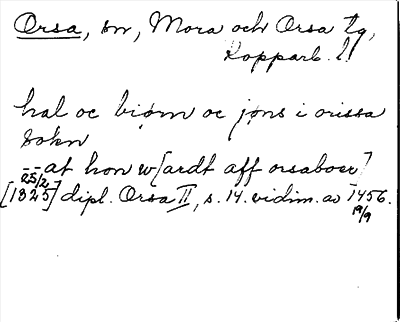 Orsa, sn, Mora och Orsa tg,
Kopparb. l.
hal oc biørn oc jøns i orissa
sokn
-- at hon w[ardt aff orsaboer]
25/2
[1325] dipl. Orsa II, s. 14. vidim. av 1456.
19/9